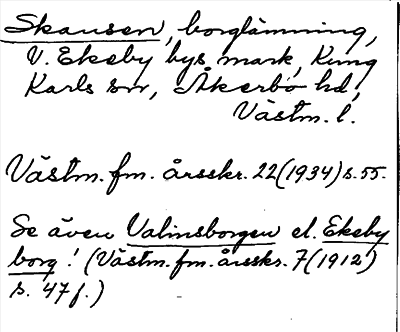 Skansen, borglämning,
V. Ekeby bys mark, Kung
Karls sn, Åkerbo hd,
Västm. l.
Västm. fm. årsskr. 22 (1934) s. 55.
Se även Valinsborgen el. Ekeby
borg! (Västm. fm. årsskr. 7 (1912)
s. 47 f.)